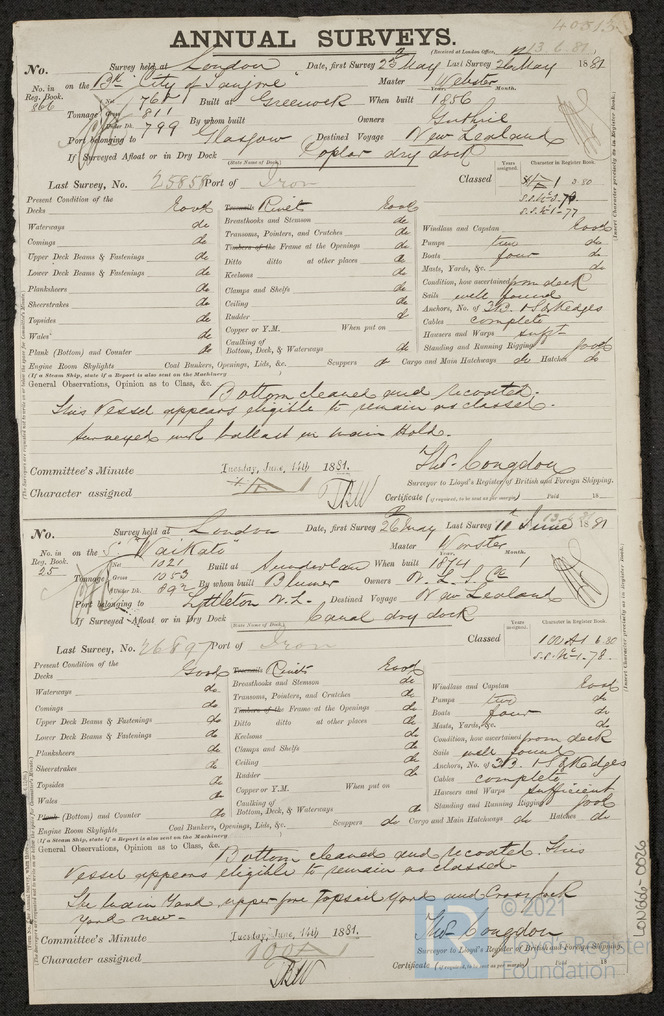 ANNUAL SURVEYS.
(Received at London Office, 13.6.81.
No. Survey held at London Date, first Survey 25 May Last Survey 26 May 1881
No. in Reg. Book. 866 on the Bk City of Master Webster
Tonnage Net 768 Gross 811 Under Dk. 799 Built at Greenock When built 1856 Years. Month.
By whom built Owners Guthrie
Port belonging to Glasgow Destined Voyage New Zealand
If Surveyed Afloat or in Dry Dock Poplar dry dock
(State Name of Dock.)
Last Survey, No. 25858 Port of Iron Classed
Years assigned. Character in Register Book.
Present Condition of the
Decks Good
Waterways do
Comings do
Upper Deck Beams & Fastenings do
Lower Deck Beams & Fastenings do
Planksheers do
Sheerstrakes do
Topsides do
Wales do
Plank (Bottom) and Counter do
Treenails Rivets Good
Breasthooks and Stemson do
Transoms, Pointers, and Crutches do
Timbers of the Frame at the Openings do
Ditto ditto at other places do
Keelsons do
Clamps and Shelfs do
Ceiling do
Rudder do
Copper or Y.M. When put on
Caulking of
Bottom, Deck, & Waterways do
Windlass and Capstan Good
Pumps two do
Boats four do
Masts, Yards, &c. do
Condition, how ascertained from deck
Sails well found
Anchors, No. of 3B. 1S & Kedges
Cables complete
Hawsers and Warps sufft
Standing and Running Rigging good
Engine Room Skylights Coal Bunkers, Openings, Lids, &c. Scuppers do Cargo and Main Hatchways do Hatches do
(If a Steam Ship, state if a Report is also sent on the Machinery
General Observations, Opinion as to Class, &c. Bottom cleaned and recoated.
This Vessel appears eligible to remain as classed.
Surveyed with ballast in main Hold.
Committee's Minute Tuesday, June, 14th 1881.
Thos. Congdon
Surveyor to Lloyd's Register of British and Foreign Shipping.
Character assigned
Certificate (if required, to be sent as per margin) Paid 18
No. Survey held at London Date, first Survey 26 May Last Survey 10th June 1881
No. in Reg. Book. 25 on the S. "Waikato" Master Worster
Tonnage Net 1021 Gross 1053 Under Dk. 892 Built at Sunderland When built 1874 Years. Month. 1
By whom built Blumer Owners N. Z. S. Co
Port belonging to Lyttleton N.Z. Destined Voyage New Zealand
If Surveyed Afloat or in Dry Dock Canal dry dock
(State Name of Dock.)
Last Survey, No. 26897 Port of Iron Classed
Years assigned. Character in Register Book.
100 A1 6.80
S.S. No 1-78.
Present Condition of the
Decks Good
Waterways do
Comings do
Upper Deck Beams & Fastenings do
Lower Deck Beams & Fastenings do
Planksheers do
Sheerstrakes do
Topsides do
Wales do
Plank (Bottom) and Counter do
Treenails Rivets Good
Breasthooks and Stemson do
Transoms, Pointers, and Crutches do
Timbers of the Frame at the Openings do
Ditto ditto at other places do
Keelsons do
Clamps and Shelfs do
Ceiling do
Rudder do
Copper or Y.M. When put on
Caulking of
Bottom, Deck, & Waterways do
Windlass and Capstan Good
Pumps two do
Boats four do
Masts, Yards, &c. do
Condition, how ascertained from deck
Sails well found
Anchors, No. of 3B. 1S & Kedges
Cables complete
Hawsers and Warps sufficient
Standing and Running Rigging good
Engine Room Skylights Coal Bunkers, Openings, Lids, &c. Scuppers do Cargo and Main Hatchways do Hatches do
(If a Steam Ship, state if a Report is also sent on the Machinery
General Observations, Opinion as to Class, &c. Bottom cleaned and recoated. This
Vessel appears eligible to remain as classed.
The Main Yard, upper fore Topsail Yard and Crossjack
Yard new.
Committee's Minute Tuesday, June, 14th 1881.
Thos. Congdon
Surveyor to Lloyd's Register of British and Foreign Shipping.
Character assigned 100A1
Certificate (if required, to be sent as per margin) Paid 18
LON666-0026
© 2021
Lloyd's Register
Foundation